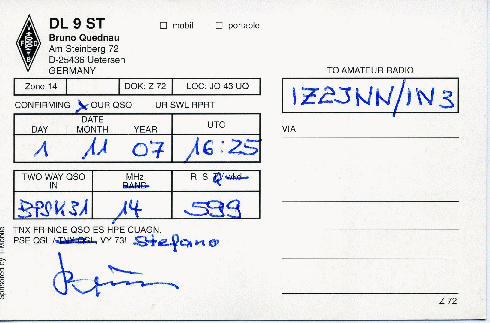 DL 9 ST
□ mobil □ portable
Bruno Quednau
Am Steinberg 72
D-25436 Uetersen
GERMANY
Zone 14 DOK: Z 72 LOC: JO 43 UQ
TO AMATEUR RADIO
IZ2JNN/IN3
CONFIRMING X OUR QSO UR SWL RPRT
DAY DATE MONTH YEAR UTC
1 11 07 16:25
VIA
TWO WAY QSO IN MHz BAND R S
BPSK31 14 599
TNX FR NICE QSO ES HPE CUAGN.
PSE QSL / TNX QSL, VY 73! Stefano
Z 72